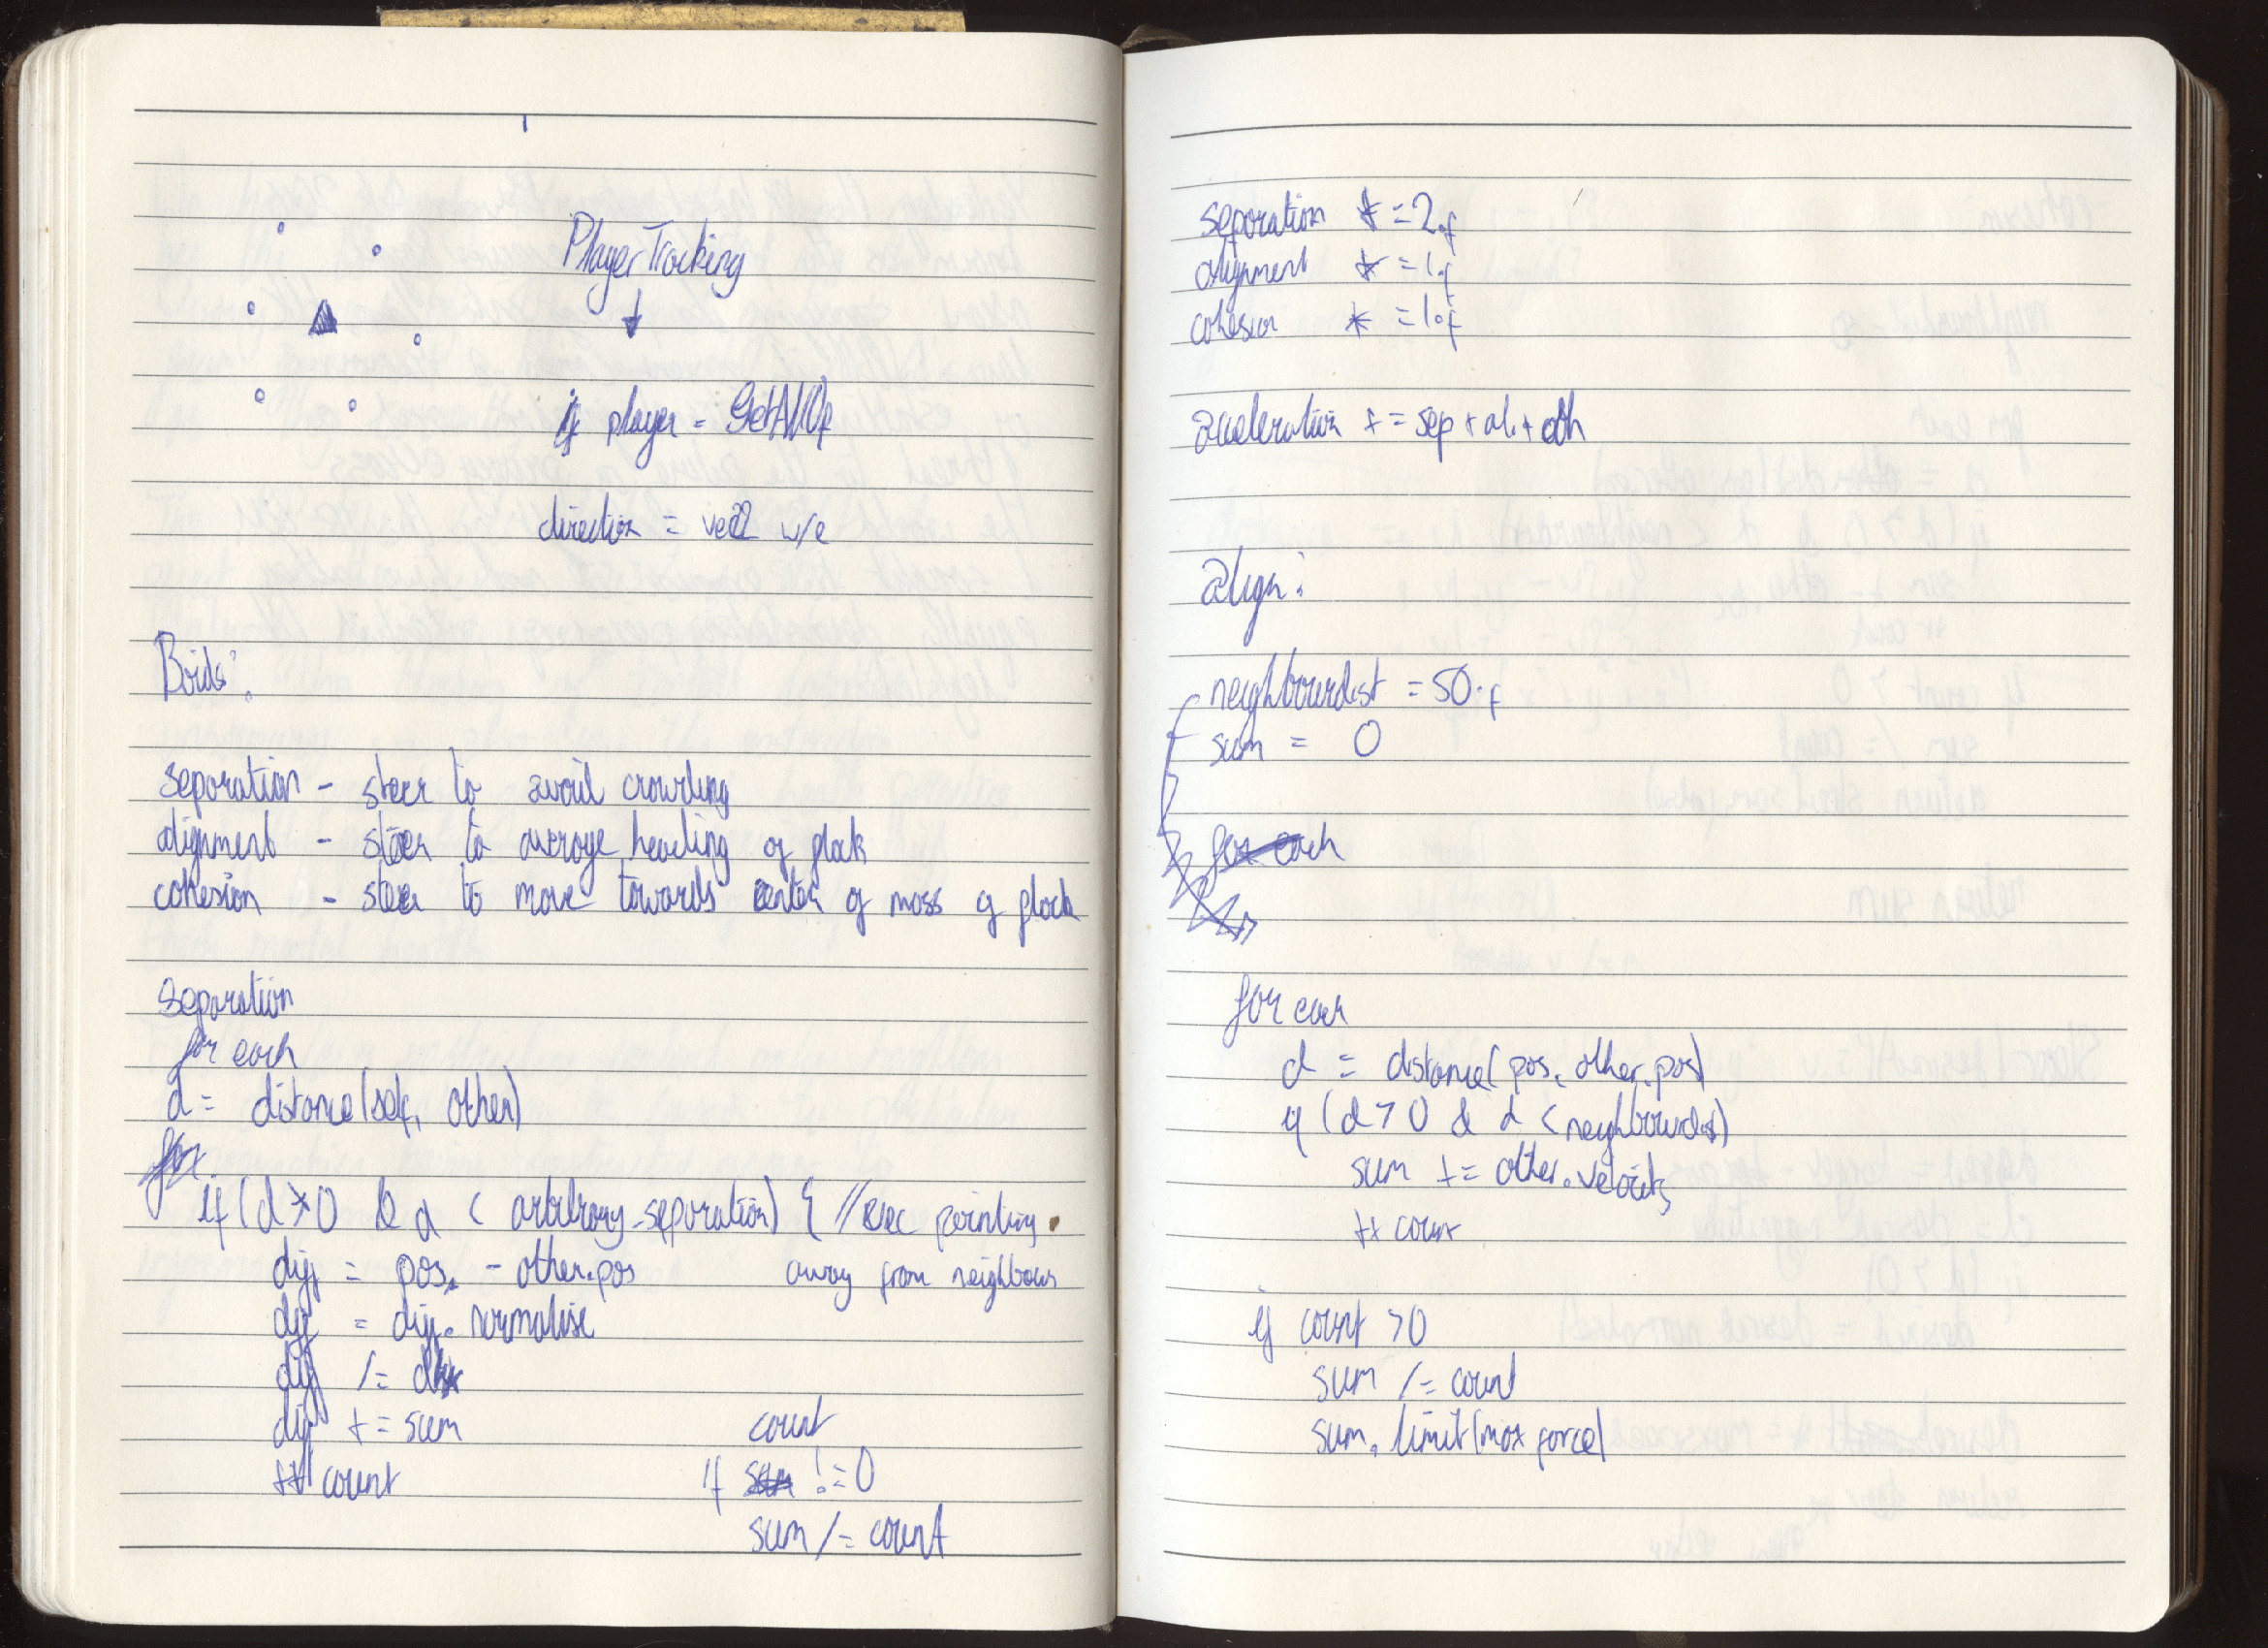 PlayerTracking
if player = GetAllOf
direction = vec2 w/e
Boids:
separation - steer to avoid crowding
alignment - steer to average heading of flock
cohesion - steer to move towards center of mass of flock
separation
for each
d = distance(self, other)
for
if (d > 0 & d < arbitrary_separation) { // vec pointing
diff = pos. - other.pos away from neighbours
diff = diff. normalise
diff /= d
diff += sum
++ count
count
if sum != 0
sum /= count
separation * = 2.f
alignment * = 1.f
cohesion * = 1.f
acceleration += sep + al. + coh
align:
neighbourdist = 50.f
sum = 0
for each
for each
d = distance( pos, other.pos)
if (d > 0 & d < neighbourdist)
sum += other.velocity
++ count
if count > 0
sum /= count
sum. limit(max force)